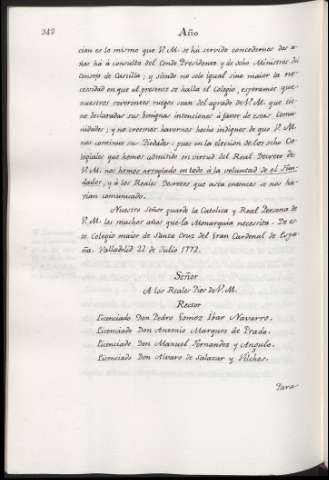 342
Año
cion es lo mismo que V. M. se há servido concedernos dos a-
ños há á consulta del Conde Presidente y de ocho Ministros del
Consejo de Castilla; y siendo no solo igual sino maior la ne-
cesidad en que al presente se halla el Colegio, esperamos que
nuestros reverentes ruegos sean del agrado de V. M. que tie-
ne declaradas sus benignas intenciones á favor de estas Comu-
nidades; y no creemos havernos hecho indignos de que V. M.
nos continue sus Piedades, pues en la eleccion de los ocho Co-
legiales que hemos admitido en virtud del Real Decreto de
V. M. nos hemos arreglado en todo á la voluntad de el Fun-
dador, y á los Reales Decretos que hasta entonces se nos ha-
vian comunicado.
Nuestro Señor guarde la Catolica y Real Persona de
V. M. los muchos años que la Monarquia necesita. De es-
te Colegio maior de Santa Cruz del Gran Cardenal de Espa-
ña. Valladolid 22 de Julio 1772.
Señor
A los Reales Pies de V. M.
Rector
Licenciado Don Pedro Gomez Ibar Navarro.
Licenciado Don Antonio Marques de Prada.
Licenciado Don Manuel Fernandez y Angulo.
Licenciado Don Alvaro de Salazar y Vilches.
Para